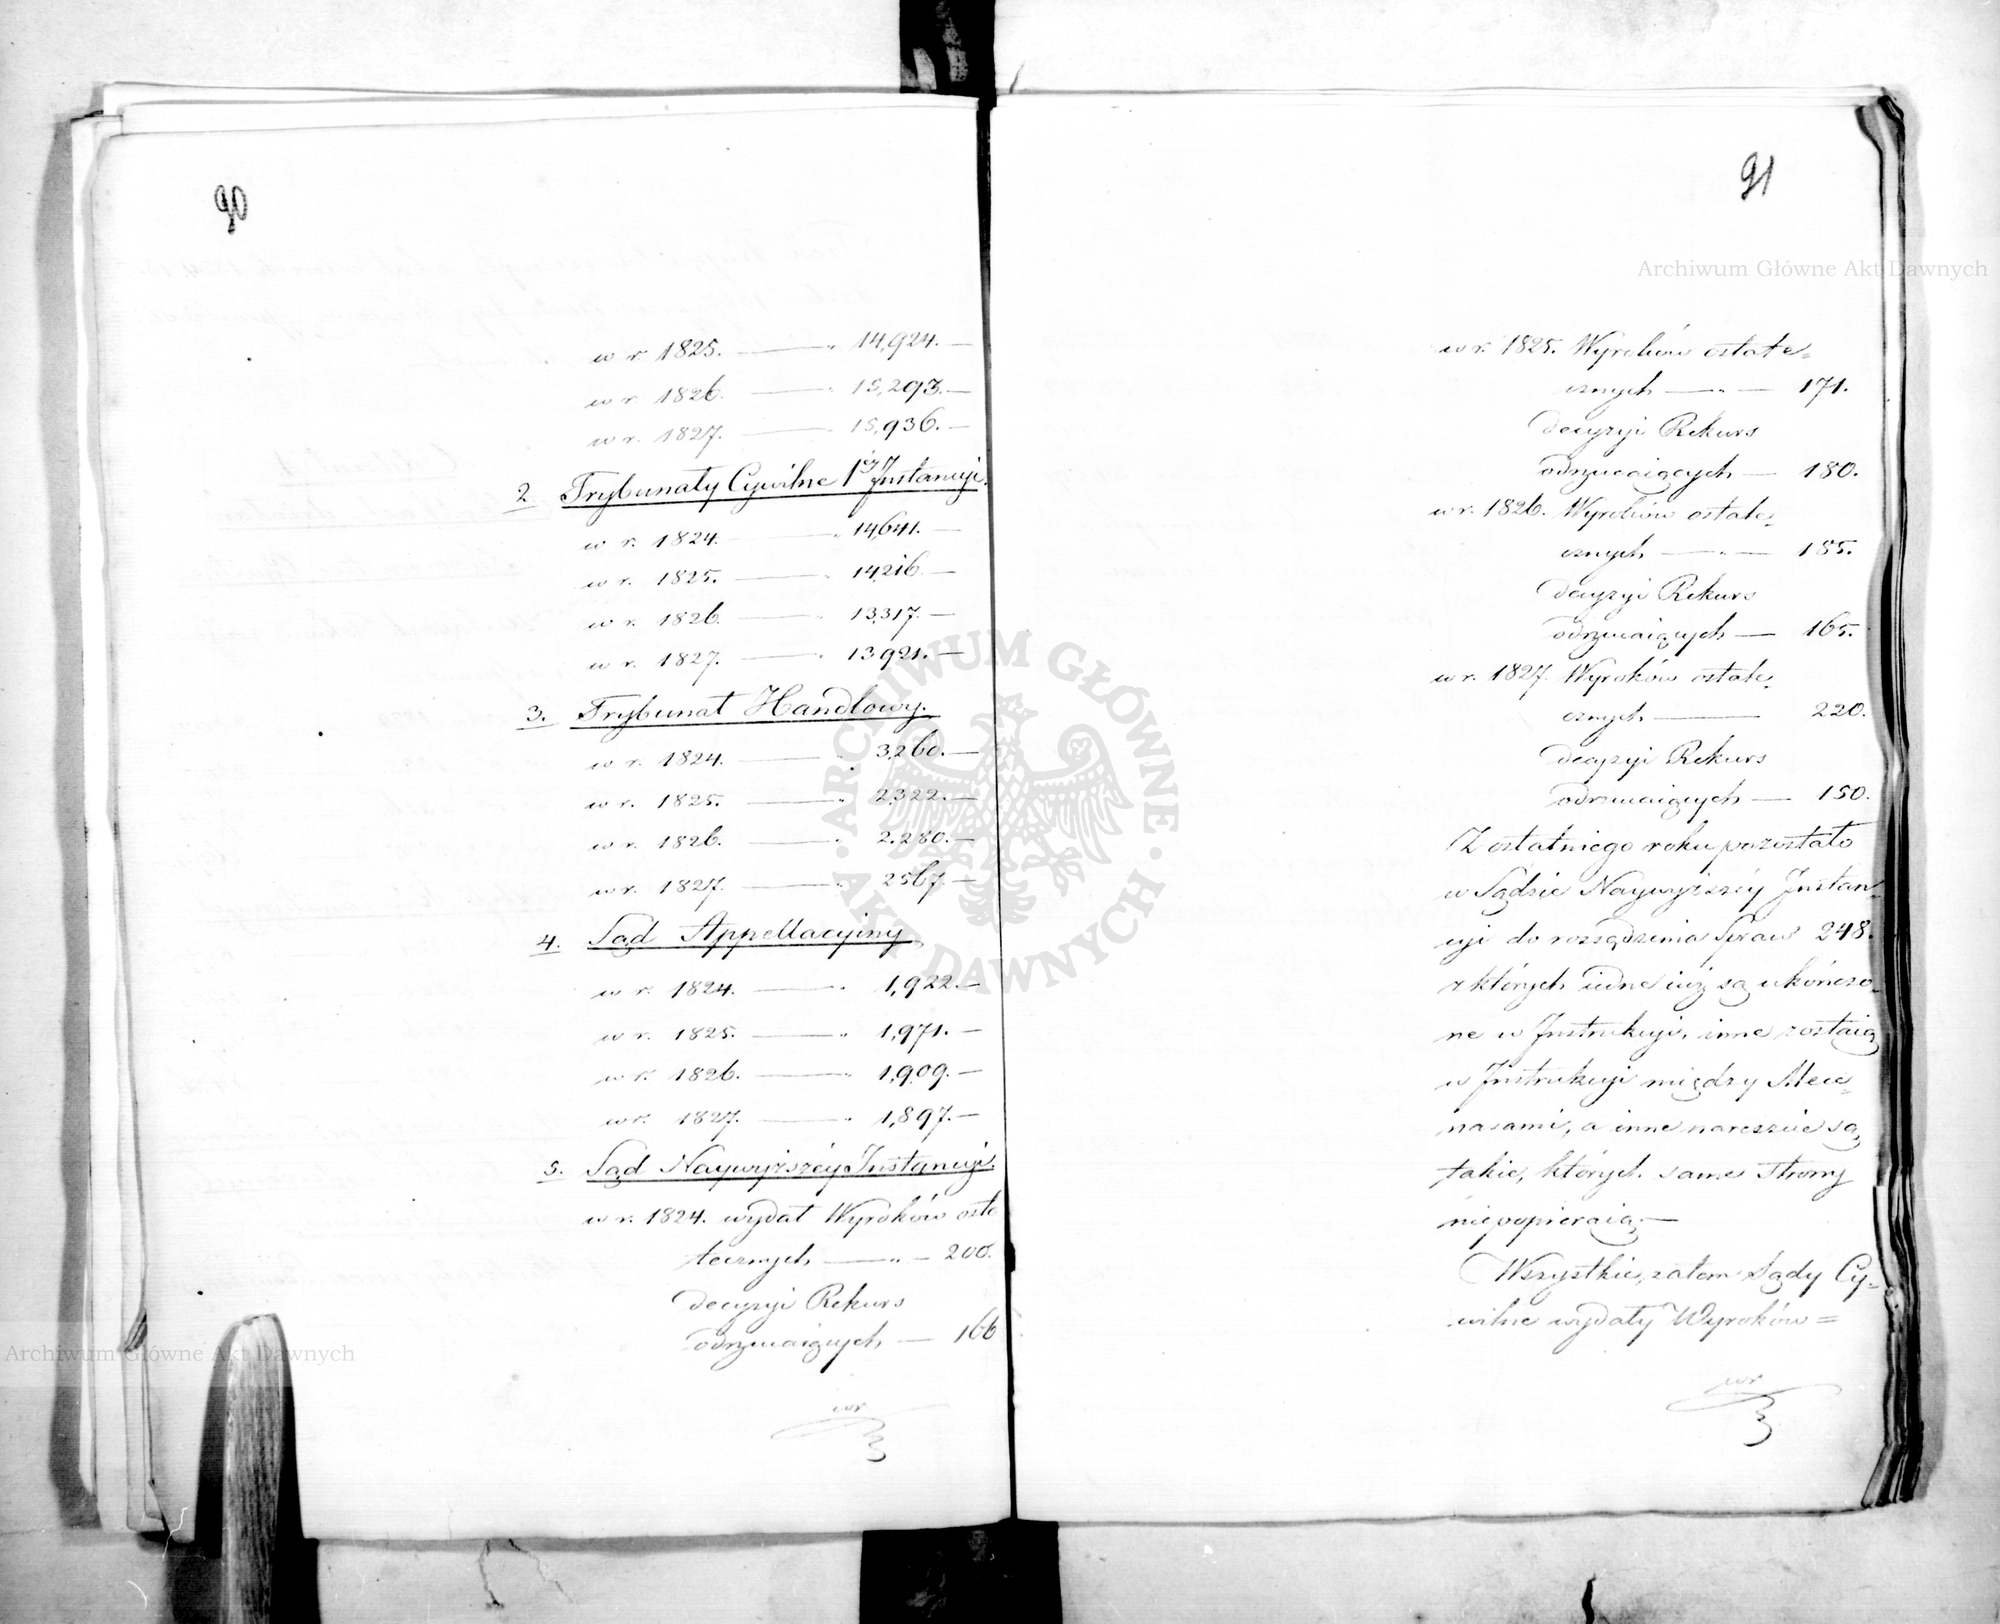 90
w r. 1825. — „ 14,924. —
w r. 1826. — „ 15,293. —
w r. 1827. — 15,936. —
2 Trybunały Cywilne 1éy Instancyi.
w r. 1824. — „ 14,641. —
w r. 1825. — „ 14,216. —
w r. 1826. — „ 13,317. —
w r. 1827. — „ 13,921. —
3. Trybunał Handlowy.
w r. 1824. — „ 3,260. —
w r. 1825. — „ 2,322. —
w r. 1826. — „ 2,280. —
w r. 1827. — „ 2567. —
4. Sąd Appellacyiny
w r. 1824. — „ 1,922. —
w r. 1825. — „ 1,971. —
w r. 1826. — „ 1,909. —
w r. 1827. — „ 1,897. —
5. Sąd Naywyższéy Instancyi.
w r. 1824. wydał Wyroków osta
tecznych — „ — 200.
decyzyi Rekurs
odrzucaiących — 166
wr
91
Archiwum Główne Akt Dawnych
w r. 1825. Wyroków ostate=
cznych — „ — 171.
decyzyi Rekurs
odrzucaiących — 180.
w r. 1826. Wyroków ostate=
cznych — „ — 185.
decyzyi Rekurs
odrzucaiących — 165.
w r. 1827. Wyroków ostate=
cznych — 220.
decyzyi Rekurs
odrzucaiących — 150.
Z ostatniego roku pozostało
w Sądzie Naywyższéy Instan=
cyi do rozsądzenia Spraw 248.
z których iedne iuż są ukończo=
ne w Instrukcyi, inne zostaią
w Instrukcyi między Mece=
nasami, a inne nareszcie są
takie, których same Strony
niepopieraią. —
Wszystkie zatem Sądy Cy=
wilne wydały Wyroków =
wr
ARCHIWUM GŁÓWNE AKT DAWNYCH
Archiwum Główne Akt Dawnych